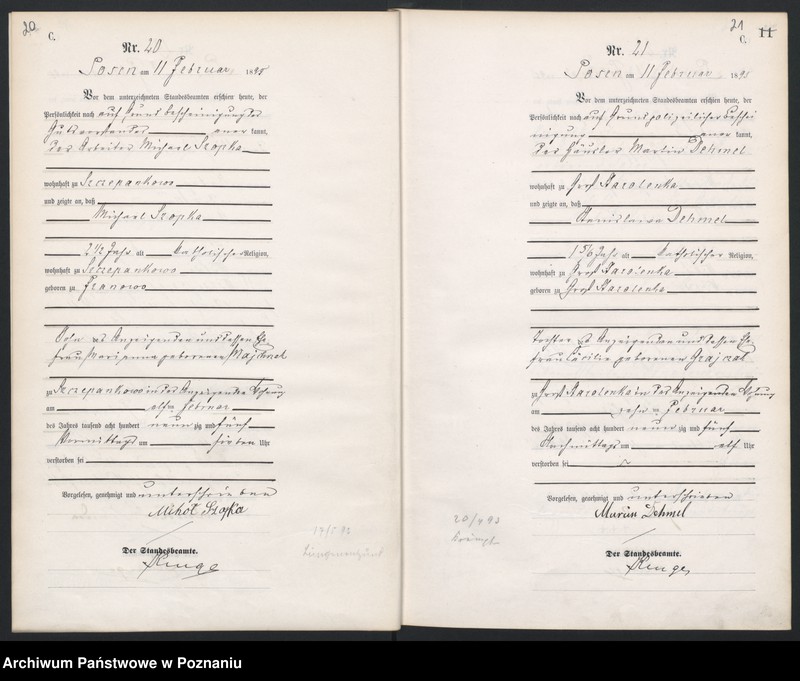 20
C.
Nr. 20
Posen am 11 Februar 1895
Vor dem unterzeichneten Standesbeamten erschien heute, der
Persönlichkeit nach auf Grund bescheinigung des
Gutsvorstandes aner kannt,
der Arbeiter Michael Szopka
wohnhaft zu Szczepankowo
und zeigte an, daß
Michael Szopka
2 1/2 Jahr alt katholischer Religion,
wohnhaft zu Szczepankowo
geboren zu Franowo
Sohn des Anzeigenden und dessen Ehe
frau Marianna geborenen Majchrzak
zu Szczepankowo in des Anzeigenden Wohnung
am elften Februar
des Jahres tausend acht hundert neun zig und fünf
Vormittags um sieben Uhr
verstorben sei
Vorgelesen, genehmigt und unterschrieben
Michał Szopka
Der Standesbeamte.
21
C. 11
Nr. 21
Posen am 11 Februar 1895
Vor dem unterzeichneten Standesbeamten erschien heute, der
Persönlichkeit nach auf Grund polizeilicher beschei
nigung aner kannt,
der Häusler Martin Dehmel
wohnhaft zu Groß Starolenka
und zeigte an, daß
Stanislawa Dehmel
1 5/6 Jahr alt katholischer Religion,
wohnhaft zu Groß Starolenka
geboren zu Groß Starolenka
Tochter des Anzeigenden und dessen Ehe
frau Cäcilie geborenen Grajczak
zu Groß Starolenka in des Anzeigenden Wohnung
am zehn ten Februar
des Jahres tausend acht hundert neun zig und fünf
Nachmittags um elf Uhr
verstorben sei
Vorgelesen, genehmigt und unterschrieben
Marcin Dehmel
Der Standesbeamte.
Archiwum Państwowe w Poznaniu